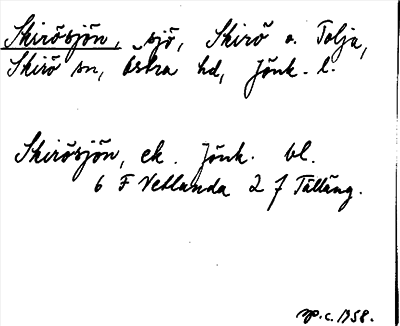 Skirösjön, sjö, Skirö o. Tolja,
Skirö sn, Östra hd, Jönk. l.
Skirösjön, ek. Jönk. bl.
6 F Vetlanda 2 f Tälläng.
c. 1958.